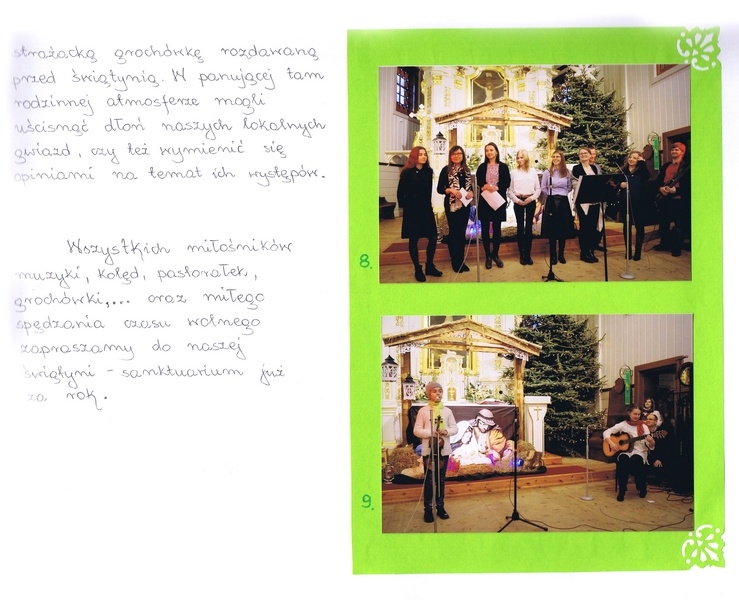 strażacką grochówkę rozdawaną
przed świątynią. W panującej tam
rodzinnej atmosferze mogli
uścisnąć dłoń naszych lokalnych
gwiazd, czy też wymienić się
opiniami na temat ich występów.
Wszystkich miłośników
muzyki, kolęd, pastorałek,
grochówki,... oraz miłego
spędzania czasu wolnego
zapraszamy do naszej
świątyni - sanktuarium już
za rok.
8.
9.